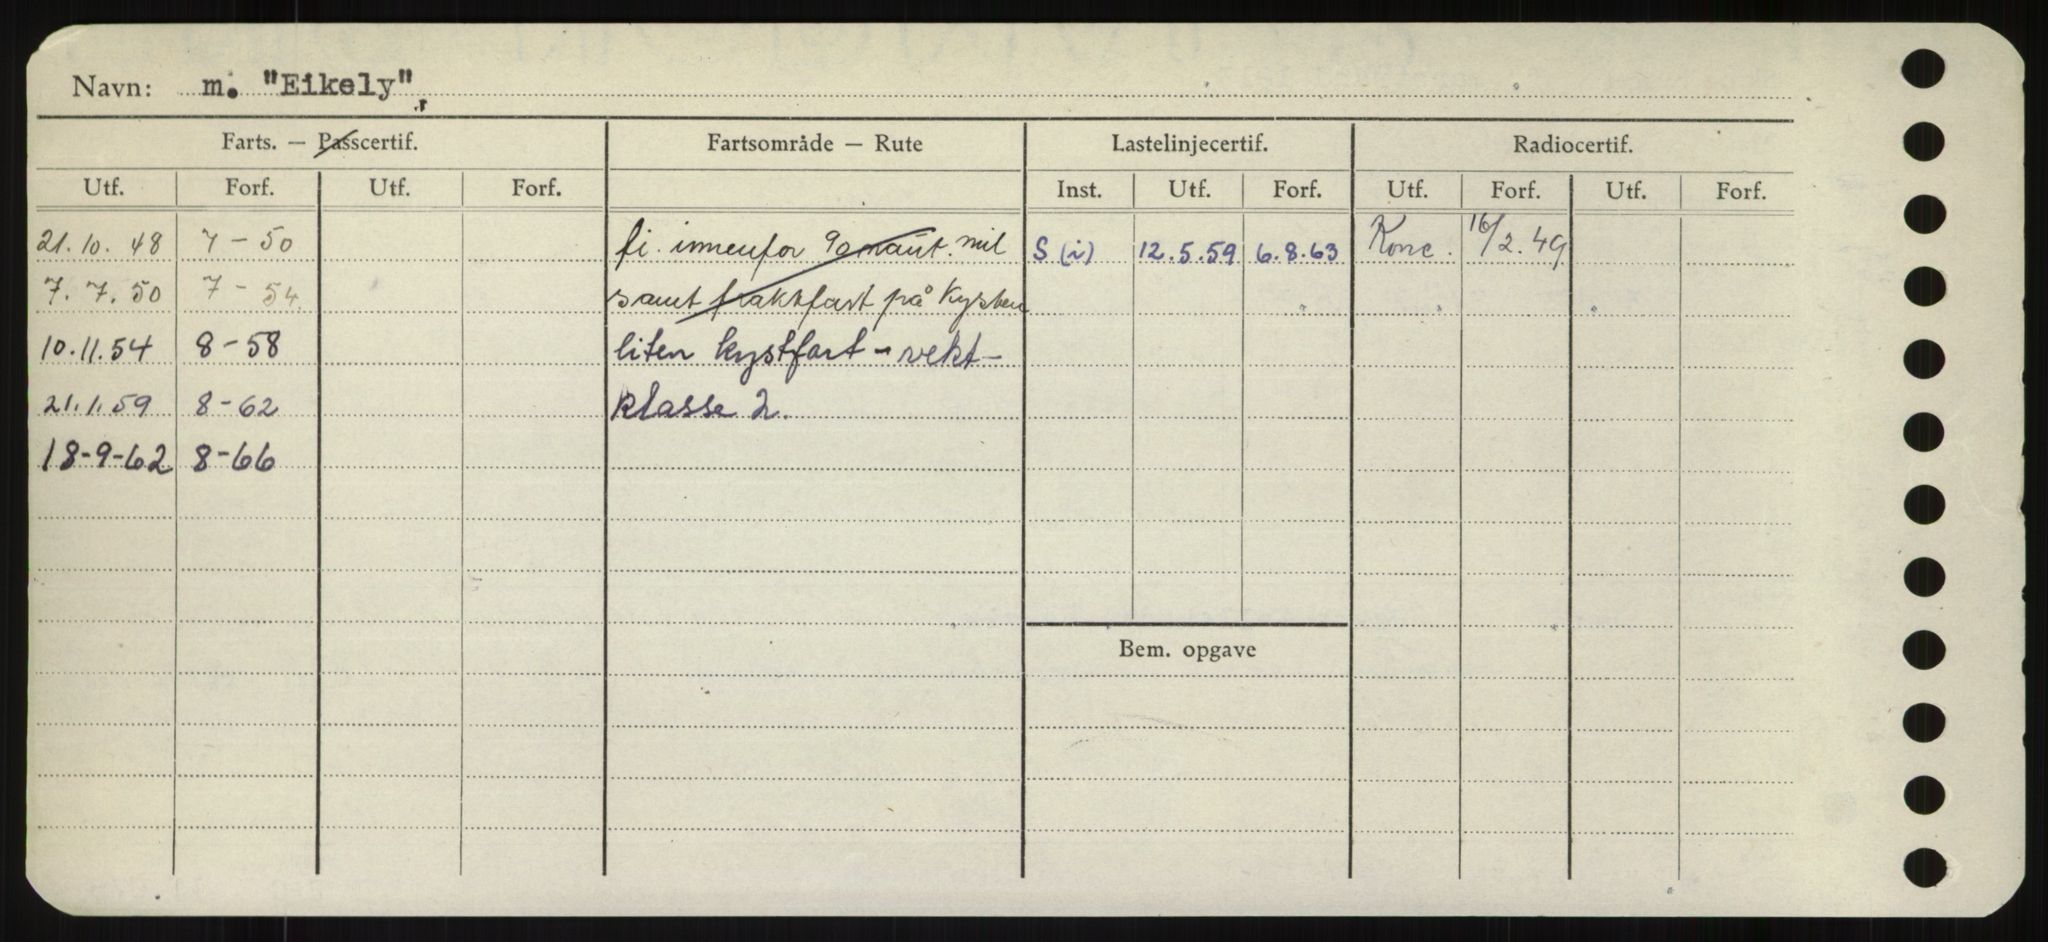 Navn: m. "Eikely"
Farts. — Passcertif. Fartsområde — Rute Lastelinjecertif. Radiocertif.
Utf. Forf. Utf. Forf. Inst. Utf. Forf. Utf. Forf. Utf. Forf.
21.10.48 7-50 fi. innenfor 90 naut. mil S (i) 12.5.59 6.8.63 Konc. 16/2.49
7.7.50 7-54. samt fraktfart på kysten
10.11.54 8-58 liten kystfart - vekt-
21.1.59 8-62 klasse 2.
18-9-62 8-66
Bem. opgave